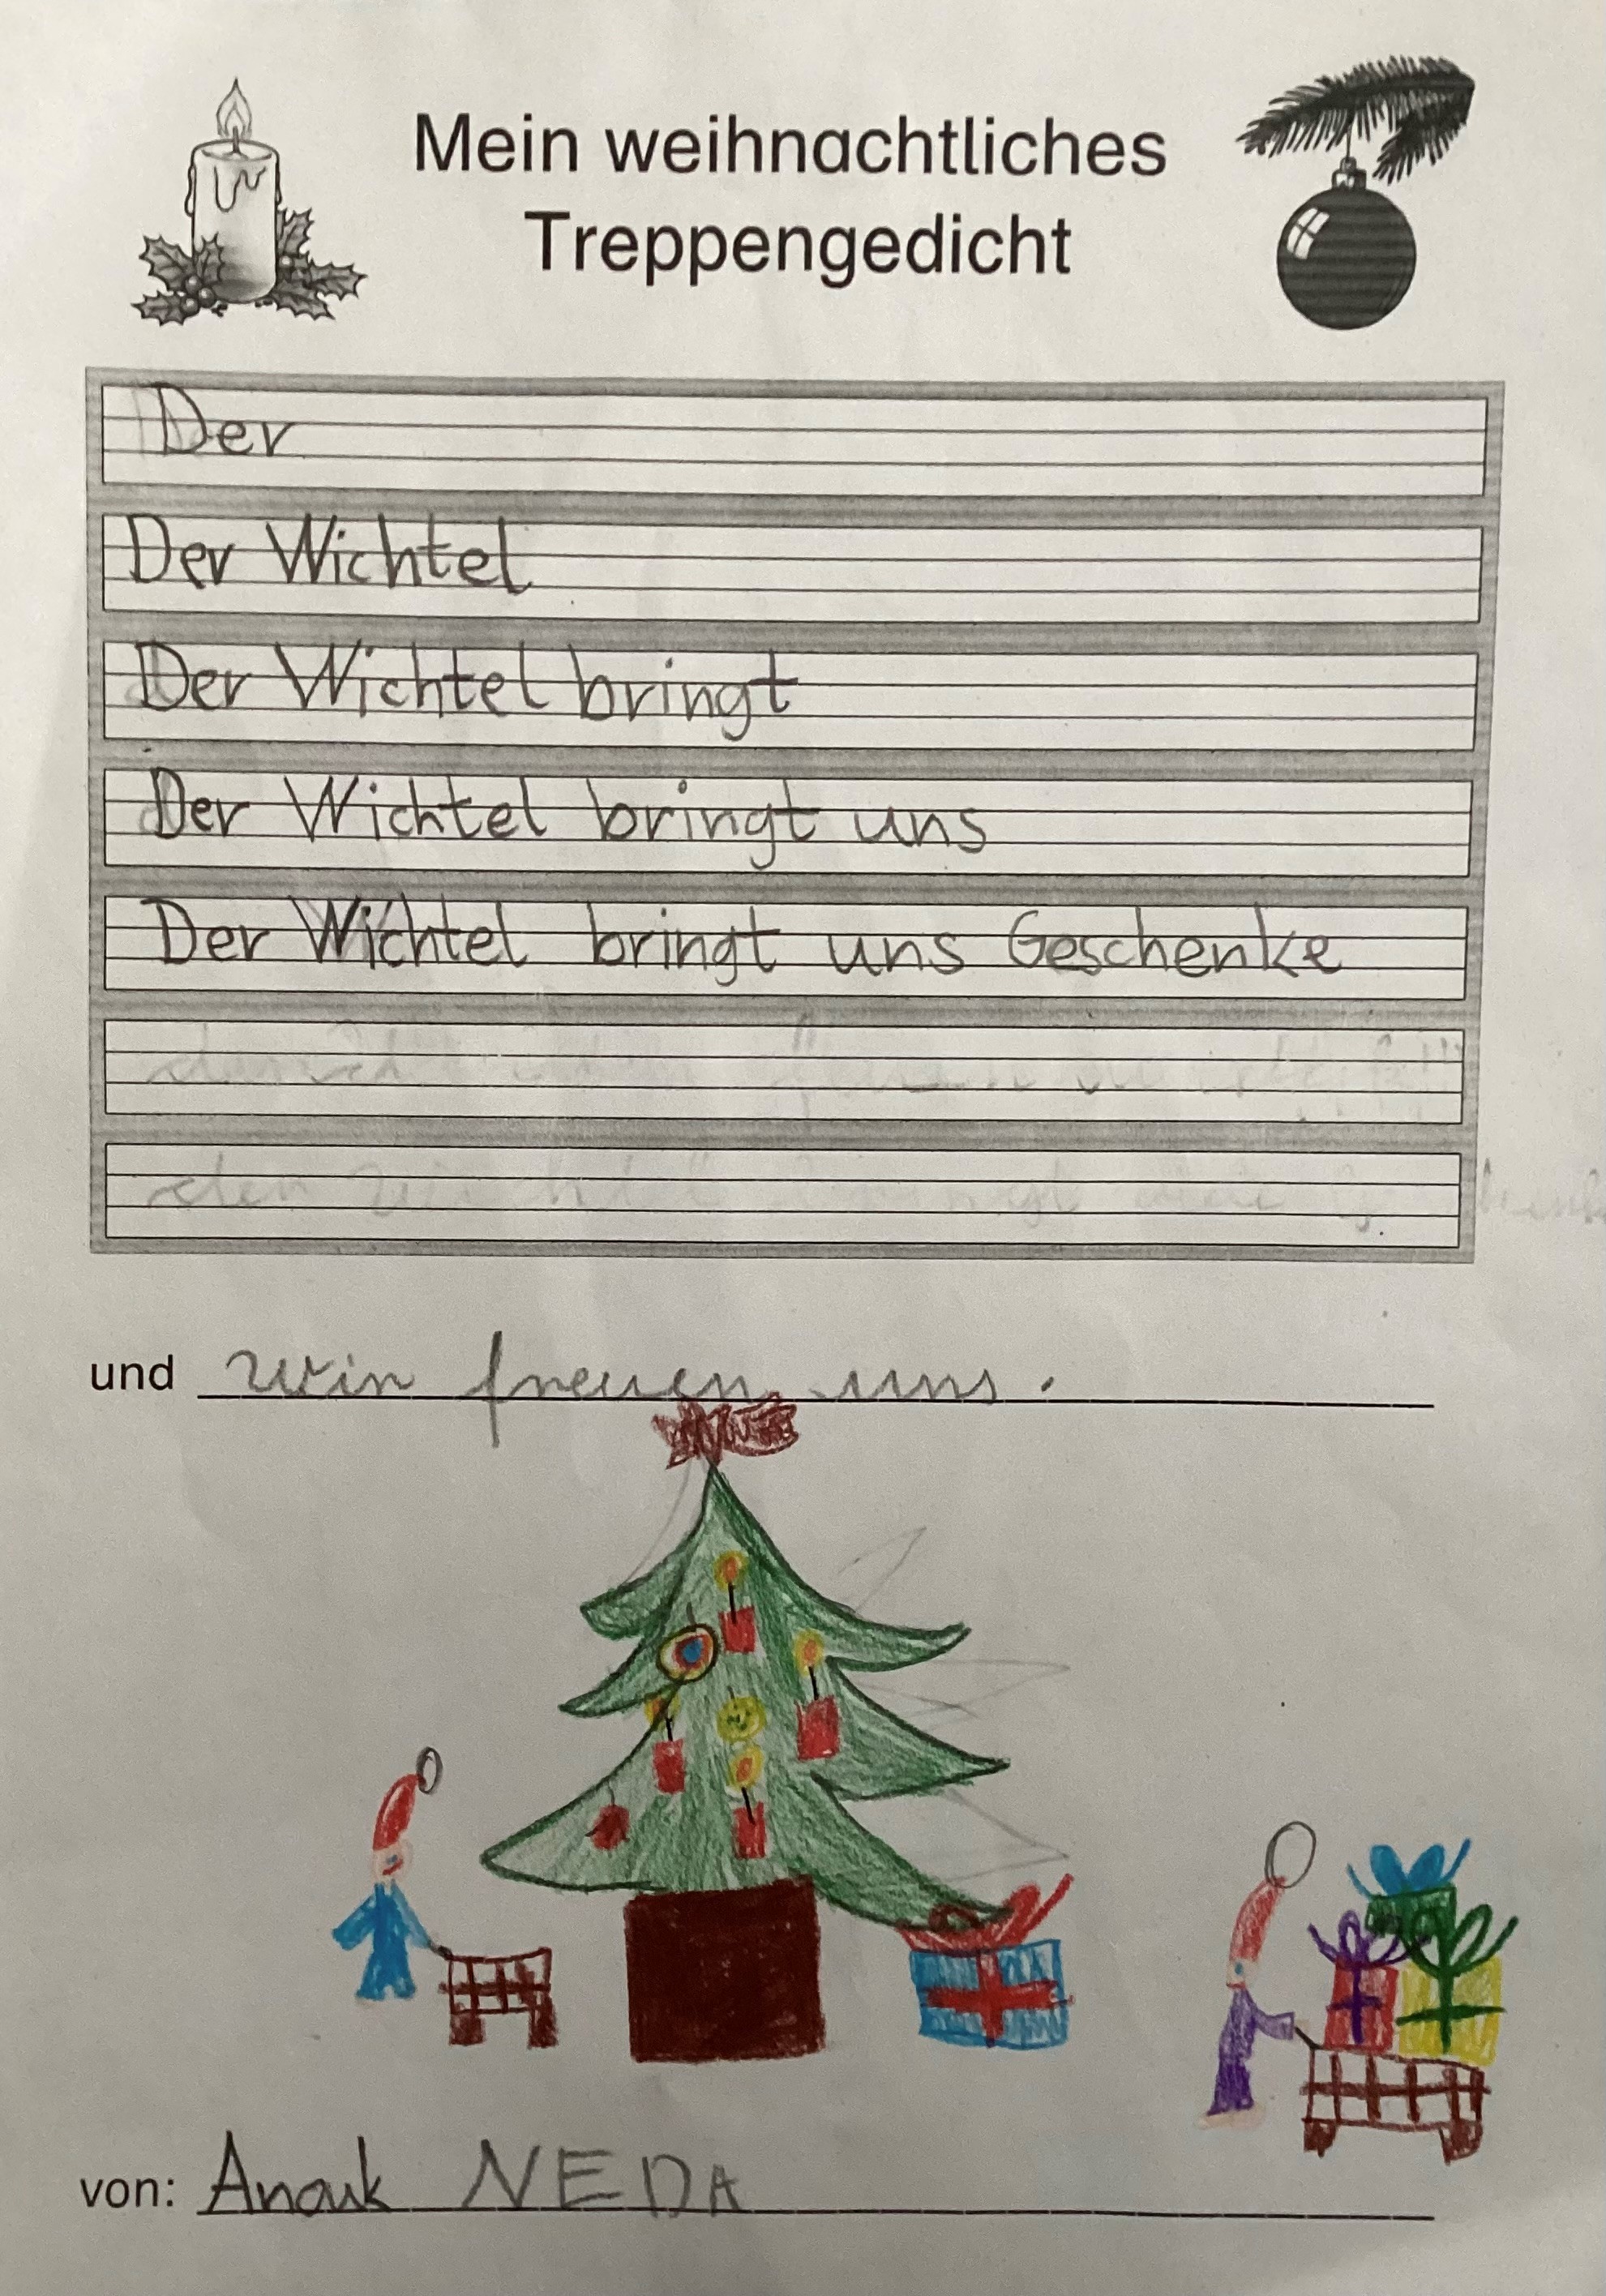 Mein weihnachtliches
Treppengedicht
Der
Der Wichtel
Der Wichtel bringt
Der Wichtel bringt uns
Der Wichtel bringt uns Geschenke
und wir freuen uns.
von: Anouk NEDA